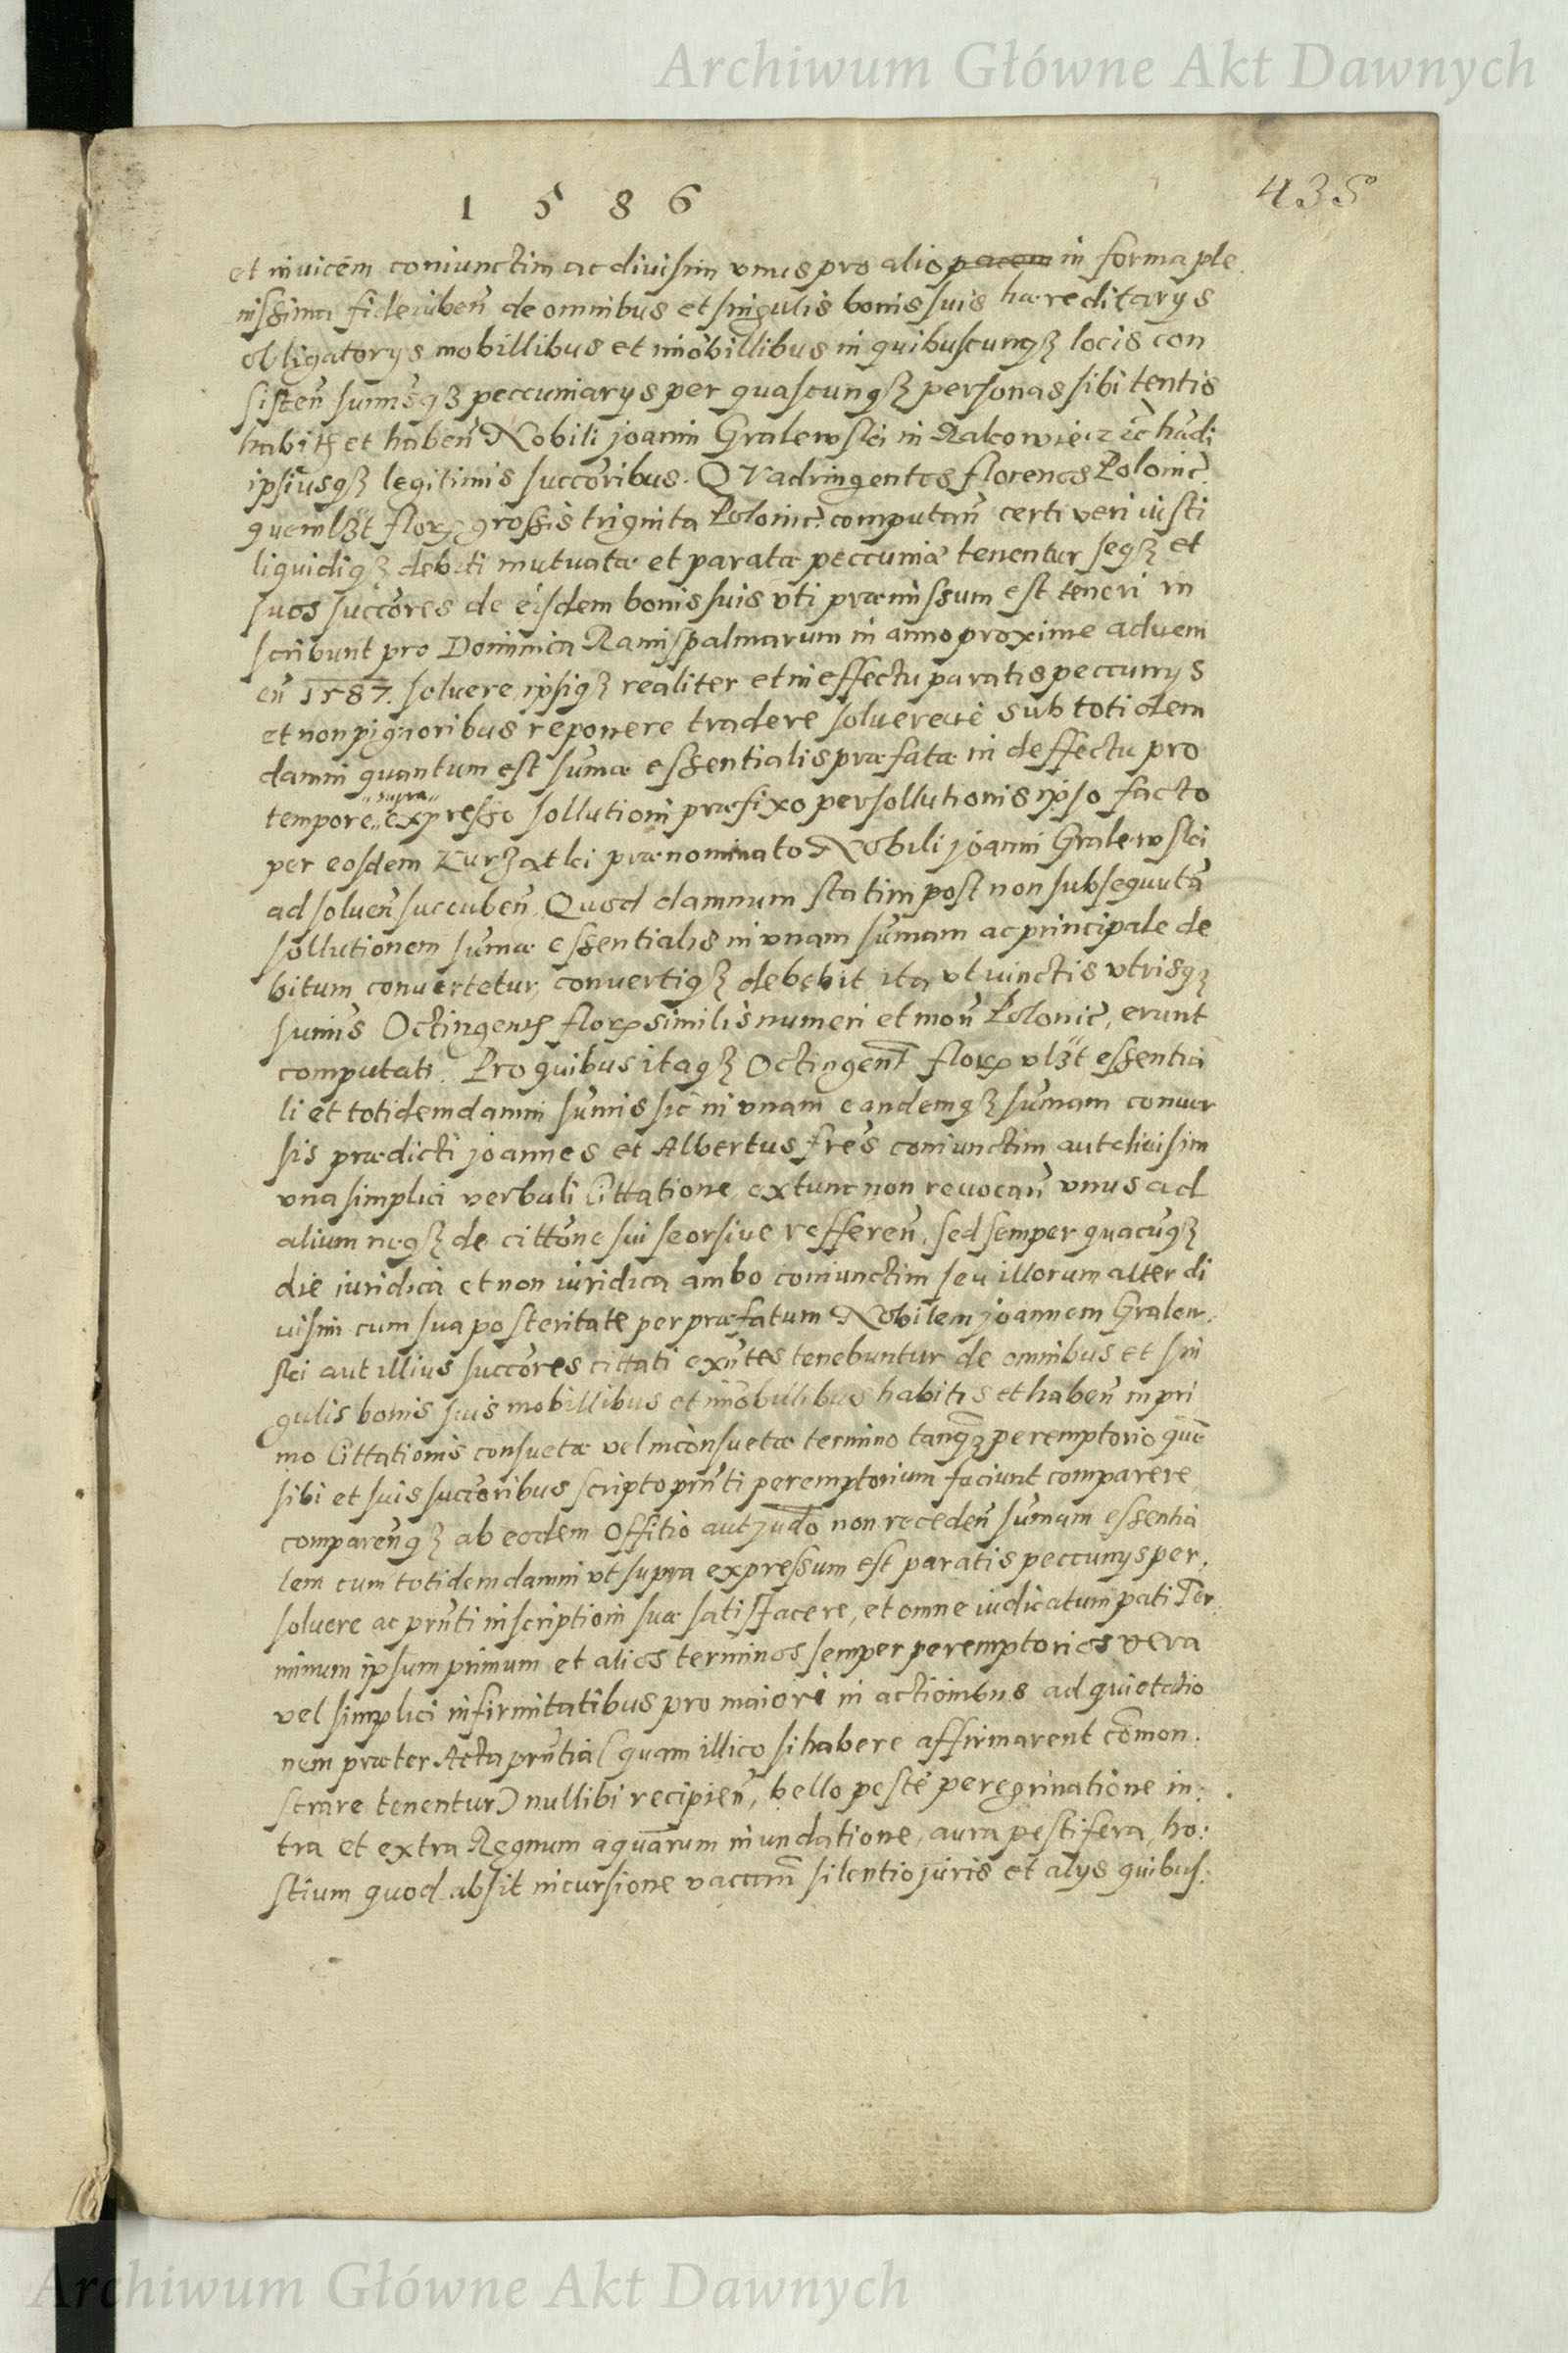 Archiwum Główne Akt Dawnych
1 5 8 6
435
et inuicem coniunctim ac diuisim vnus pro alio pacem in forma ple
nissima fideiuben̄ de omnibus et singulis bonis suis hæreditarys
obligatorys mobillibus et im̄obillibus in quibuscunqȝ locis con
sisten̄ sum̄isqȝ peccuniarys per quascunqȝ personas sibi tentis
habitꝭ et haben̄ Nobili joanni Gralewski in Rakowiecz hūdi
ipsiusqȝ legitimis succōribus. QVadringentos florenos Polonic̄.
quemlꝫt florꝝ grossis triginta Polonic̄. computan̄ certi veri iusti
liquidiqȝ debiti mutuatæ et paratæ peccuniæ tenentur seqȝ et
suos succōres de eisdem bonis suis vti præmissum est teneri in
scribunt pro Dominica Ramispalmarum in anno proxime adueni
en̄ 1587. soluere ipsiqȝ realiter et in effectu paratis peccunys
et non pignoribus reponere tradere soluereue sub totidem
damni quantum est sum̄æ essentialis præfatæ in deffectu pro
tempore „supra„ expresso sollutioni præfixo persollutionis ipso facto
per eosdem Kurzatki prænominato Nobili joanni Gralewski
ad soluen̄ succuben̄. Quod damnum statim post non subsequutā
sollutionem sum̄æ essentialis in vnam sum̄am ac principale de
bitum conuertetur, conuertiqȝ debebit, ita vt iunctis vtrisqȝ
sum̄is Octingentꝭ florꝝ similis numeri et mon̄ Polonic̄, erunt
computati. Pro quibus itaqȝ Octingent̄ florꝝ vlꝫt essentia
li et totidem damni sum̄is sic in vnam eandemqȝ sum̄am conuer
sis prædicti joannes et Albertus fr̄es coniunctim aut diuisim
vna simplici verbali Cittatione, extunc non reuocan̄ vnus ad
alium neqȝ de cittōne sui seorsiue refferen̄, sed semper quacūqȝ
die iuridica et non iuridica ambo coniunctim seu illorum alter di
uisim cum sua posteritate per præfatum Nobilem joannem Gralew.
ski aut illius succōres cittati exn̄tes tenebuntur de omnibus et sin
gulis bonis suis mobillibus et im̄obillibus habitis et haben̄ in pri
mo Cittationis consuetæ vel inconsuetæ termino tanqȝ peremptorio quē
sibi et suis succōribus scripto prn̄ti peremptorium faciunt comparere,
comparen̄qȝ ab eodem offitio aut judo non receden̄ sum̄am essentia
lem cum totidem damni vt supra expressum est paratis peccunys per.
soluere ac prn̄ti inscriptioni suæ satisfacere, et omne iudicatum pati Ter.
minum ipsum primum et alios terminos semper peremptorios vera
vel simplici infirmitatibus pro maiori in actionibus ad quietatio
nem præter Acta prn̄tia (quam illico si habere affirmarent com̄on.
strare tenentur) nullibi recipien̄, bello peste peregrinatione in:
tra et extra Regnum aquarum inundatione, aura pestifera, ho:
stium quod absit incursione vaccam̄ silentio juris et alys quibus:
Archiwum Główne Akt Dawnych